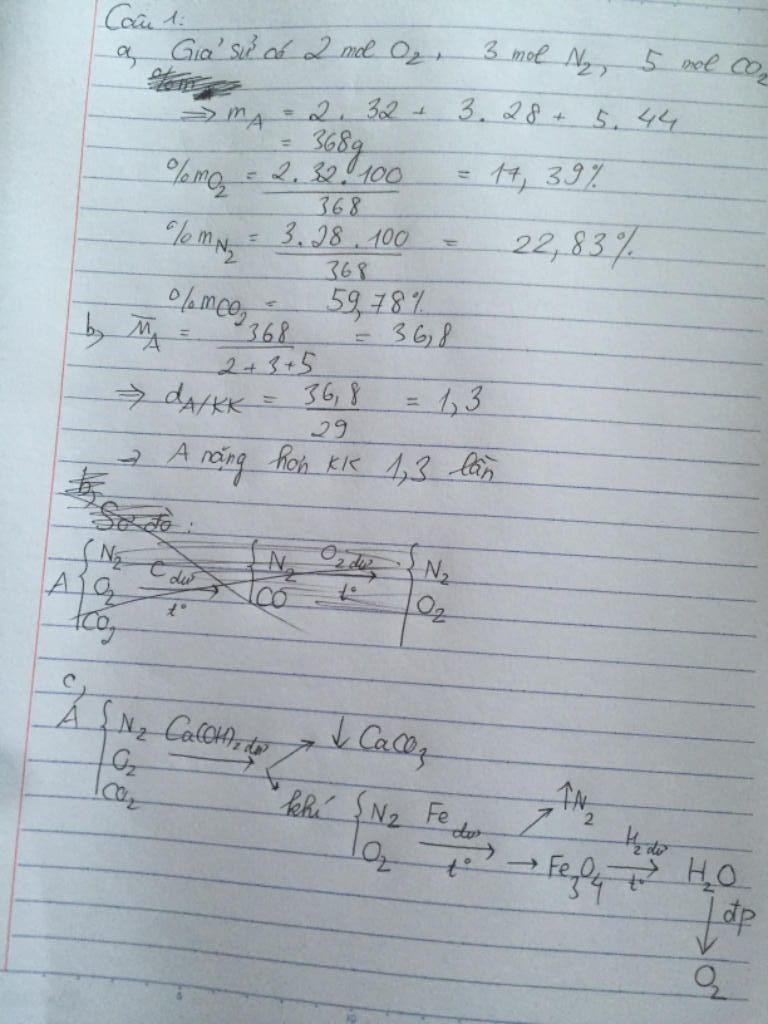 Câu 1:
a, Giả sử có 2 mol O₂, 3 mol N₂, 5 mol CO₂
⇒ m_A = 2.32 + 3.28 + 5.44
= 368g
%m_O₂ = 2.32.100 / 368 = 17,39%
%m_N₂ = 3.28.100 / 368 = 22,83%
%m_CO₂ = 59,78%
b, M̄_A = 368 / 2+3+5 = 36,8
⇒ d_A/KK = 36,8 / 29 = 1,3
→ A nặng hơn KK 1,3 lần
b,
Sơ đồ:
A { N₂ O₂ CO₂ C dư t° → { N₂ CO O₂ dư t° → { N₂ O₂
c,
A { N₂ O₂ CO₂ Ca(OH)₂ dư → ↓ CaCO₃
khí { N₂ O₂ Fe dư t° → ↑N₂
→ Fe₃O₄ H₂ dư t° → H₂O
↓ đp
O₂